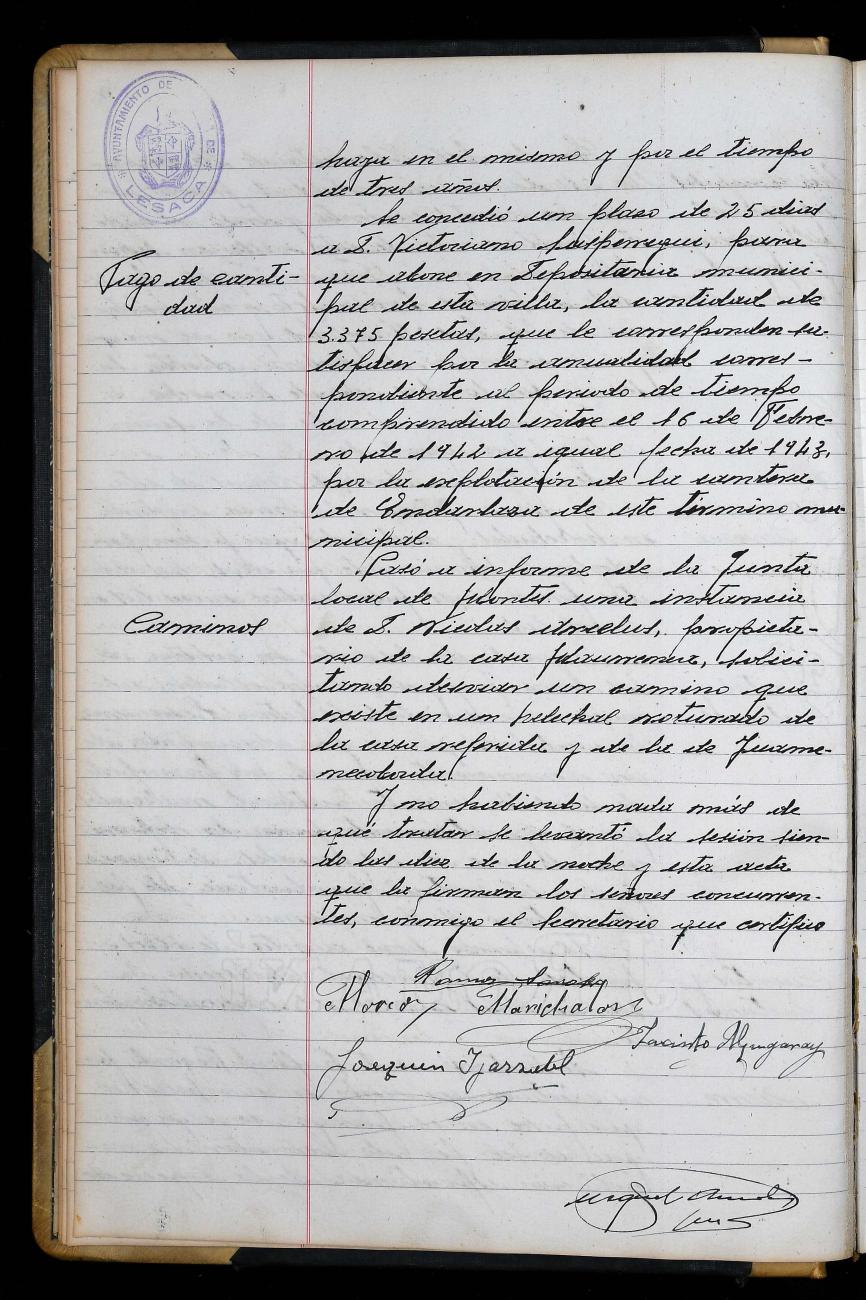 AYUNTAMIENTO DE
DE
LESACA
haya en el mismo y por el tiempo
de tres años.
Se concedió un plaso de 25 dias
a D. Victoriano
Pago de canti-
dad
para
que abone en Depositaria munici-
pal de esta villa, la cantidad de
3.375 pesetas, que le corresponden sa-
tisfacer por la anualidad corres-
pondiente al periodo de tiempo
comprendido entre el 16 de Febre-
ro de 1942 a igual fecha de 1943,
por la explotación de la cantera
de Endarlaza de este término mu-
nicipal.
Pasó a informe de la Junta
local de Montes una instancia
Caminos
de D. Nicolas Arzelus, propieta-
rio de la casa solici-
tando desviar un camino que
existe en un helechal roturado de
la casa referida y de la de Juame-
necoborda.
Y no habiendo nada más de
qué tratar se levantó la sesión sien-
do las diez de la noche y esta acta
que la firman los señores concurren-
tes, conmigo el Secretario que certifico
Marichalar
Jacinto
Joaquin
Miguel